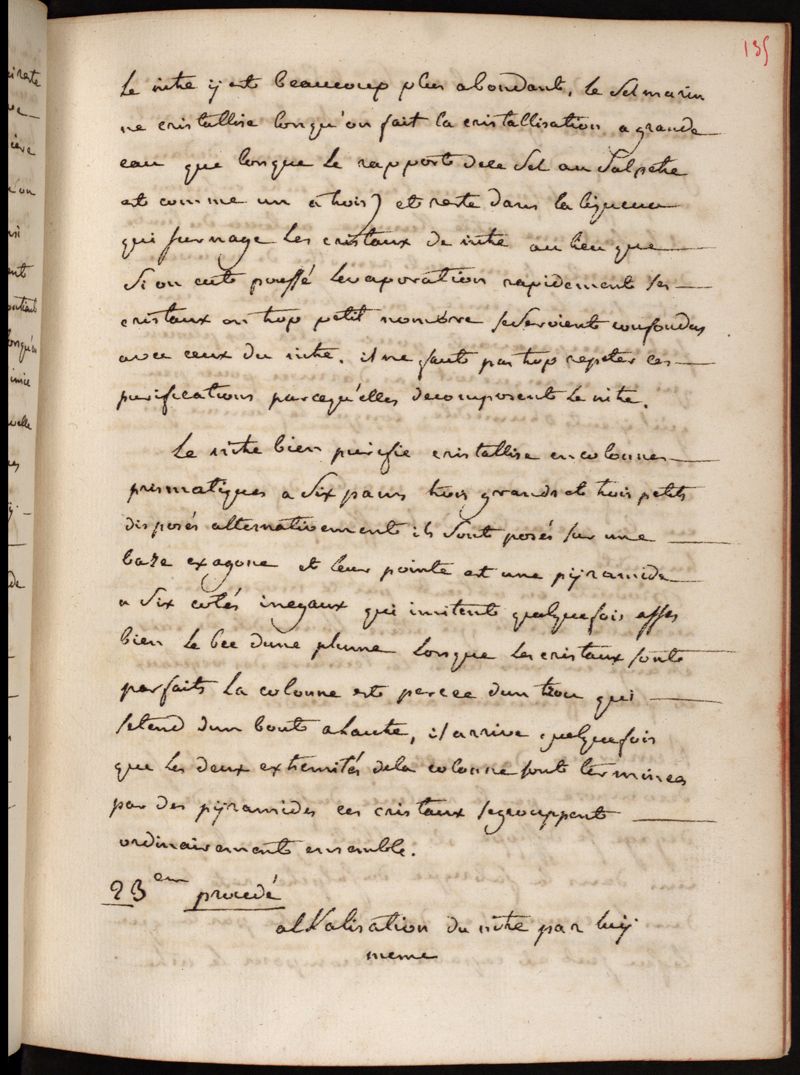 135
Le nitre y est beaucoup plus abondant, le Sel marin
ne cristallise lorsqu'on fait la cristallisation a grande
eau que lorsque le rapport de ce Sel au Salpetre
est comme un a trois) et reste dans la liqueur
qui surnage les cristaux de nitre au lieu que
Si on eut poussé levaporation rapidement ses
cristaux en trop petit nombre se seroient confondus
avec ceux du nitre. il ne faut pas trop repeter ces
purifications parcequ'elles decomposent le nitre.
Le nitre bien purifie cristallise en colonnes
prismatiques a Six pans trois grands et trois petits
disposés alternativement ils Sont posés sur une
baze exagone et leur pointe est une pyramide
a Six cotés inegaux qui imitent quelquefois assés
bien le bec dune plume lorsque les cristaux sont
parfaits la colonne est percee dun trou qui
setend dun bout a lautre, il arrive quelquefois
que les deux extremités de la colonne sont terminées
par des pyramides ces cristaux segrouppent
ordinairement ensemble.
23em procedé
alkalisation du nitre par luy
meme